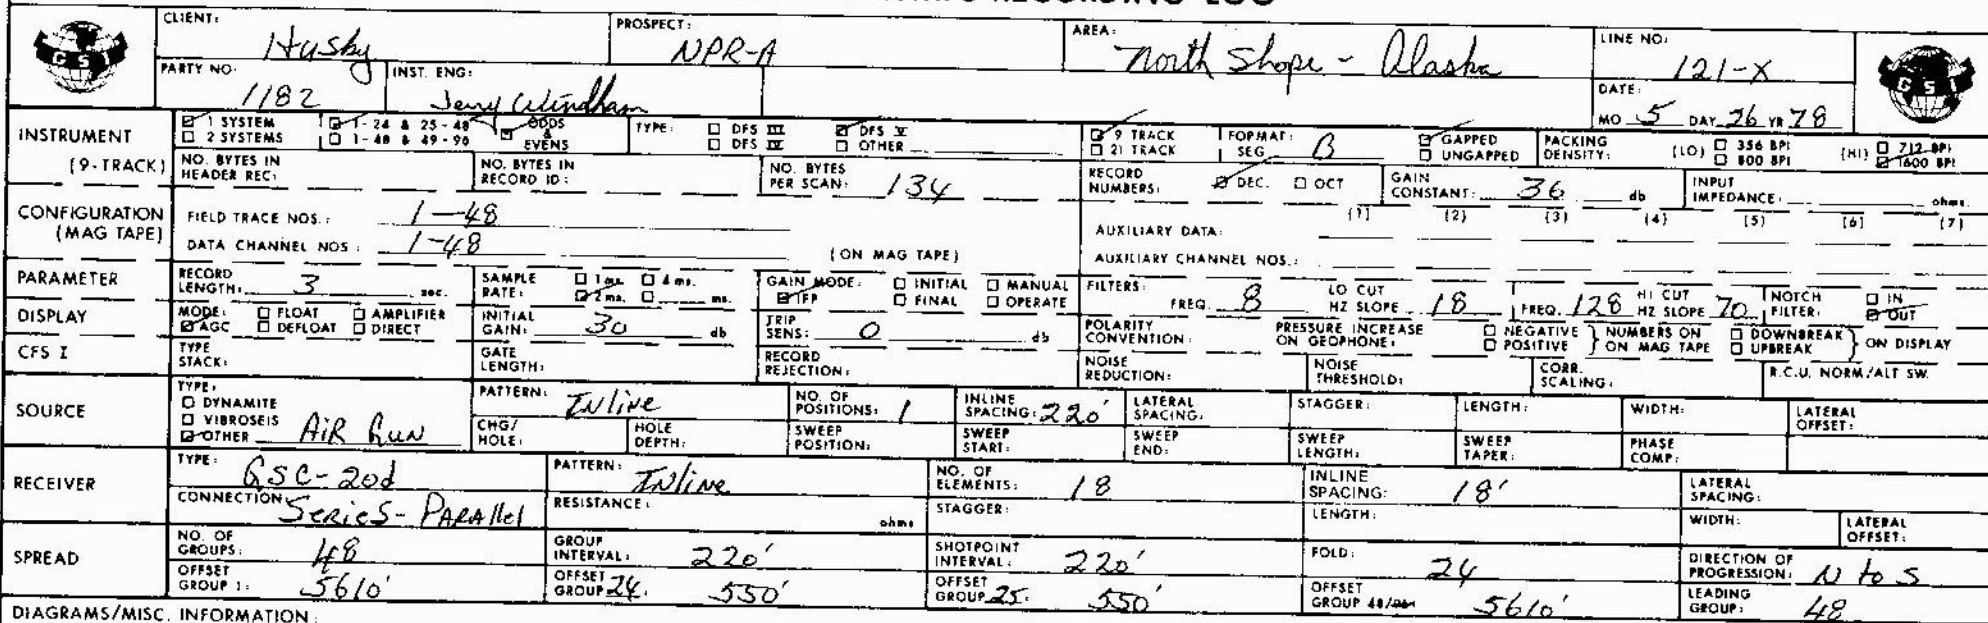 CLIENT: Husky PROSPECT: NPR-A AREA: North Slope - Alaska LINE NO: 121-X
GSI
PARTY NO: 1182 INST. ENG: Jerry Windham DATE: MO 5 DAY 26 YR 78
GSI
INSTRUMENT (9-TRACK)
☑ 1 SYSTEM ☑ 1-24 & 25-48 ☑ ODDS & EVENS TYPE: ☐ DFS III ☑ DFS V ☑ 9 TRACK FORMAT: SEG B ☑ GAPPED PACKING DENSITY: (LO) ☐ 356 BPI (HI) ☐ 712 BPI
☐ 2 SYSTEMS ☐ 1-48 & 49-96 ☐ DFS IV ☐ OTHER ☐ 21 TRACK ☐ UNGAPPED ☐ 800 BPI ☑ 1600 BPI
NO. BYTES IN HEADER REC: NO. BYTES IN RECORD ID: NO. BYTES PER SCAN: 134 RECORD NUMBERS: ☑ DEC. ☐ OCT GAIN CONSTANT: 36 db INPUT IMPEDANCE: ohms.
CONFIGURATION (MAG TAPE)
FIELD TRACE NOS.: 1-48 AUXILIARY DATA: (1) (2) (3) (4) (5) (6) (7)
DATA CHANNEL NOS: 1-48 (ON MAG TAPE) AUXILIARY CHANNEL NOS.:
PARAMETER RECORD LENGTH: 3 sec. SAMPLE RATE: ☐ 1 ms. ☐ 4 ms. ☑ 2 ms. ☐ ms. GAIN MODE: ☐ INITIAL ☐ MANUAL ☑ IFP ☐ FINAL ☐ OPERATE FILTERS: FREQ. 8 LO CUT HZ SLOPE 18 FREQ. 128 HI CUT HZ SLOPE 70 NOTCH FILTER: ☐ IN ☑ OUT
DISPLAY MODE: ☐ FLOAT ☐ AMPLIFIER ☑ AGC ☐ DEFLOAT ☐ DIRECT INITIAL GAIN: 30 db TRIP SENS: 0 db POLARITY CONVENTION: PRESSURE INCREASE ON GEOPHONE: ☐ NEGATIVE ☐ POSITIVE } NUMBERS ON ON MAG TAPE ☐ DOWNBREAK ☐ UPBREAK } ON DISPLAY
CFS I TYPE STACK: GATE LENGTH: RECORD REJECTION: NOISE REDUCTION: NOISE THRESHOLD: CORR. SCALING: R.C.U. NORM/ALT SW.
SOURCE TYPE: ☐ DYNAMITE ☐ VIBROSEIS ☑ OTHER AIR GUN PATTERN: INline NO. OF POSITIONS: 1 INLINE SPACING: 220' LATERAL SPACING: STAGGER: LENGTH: WIDTH: LATERAL OFFSET:
CHG/HOLE: HOLE DEPTH: SWEEP POSITION: SWEEP START: SWEEP END: SWEEP LENGTH: SWEEP TAPER: PHASE COMP:
RECEIVER TYPE: GSC-20d PATTERN: INline NO. OF ELEMENTS: 18 INLINE SPACING: 18' LATERAL SPACING:
CONNECTION: SERIES-PARAllel RESISTANCE: ohms STAGGER: LENGTH: WIDTH: LATERAL OFFSET:
SPREAD NO. OF GROUPS: 48 GROUP INTERVAL: 220' SHOTPOINT INTERVAL: 220' FOLD: 24 DIRECTION OF PROGRESSION: N to S
OFFSET GROUP 1: 5610' OFFSET GROUP 24: 550' OFFSET GROUP 25: 550' OFFSET GROUP 48/96 5610' LEADING GROUP: 48
DIAGRAMS/MISC. INFORMATION: